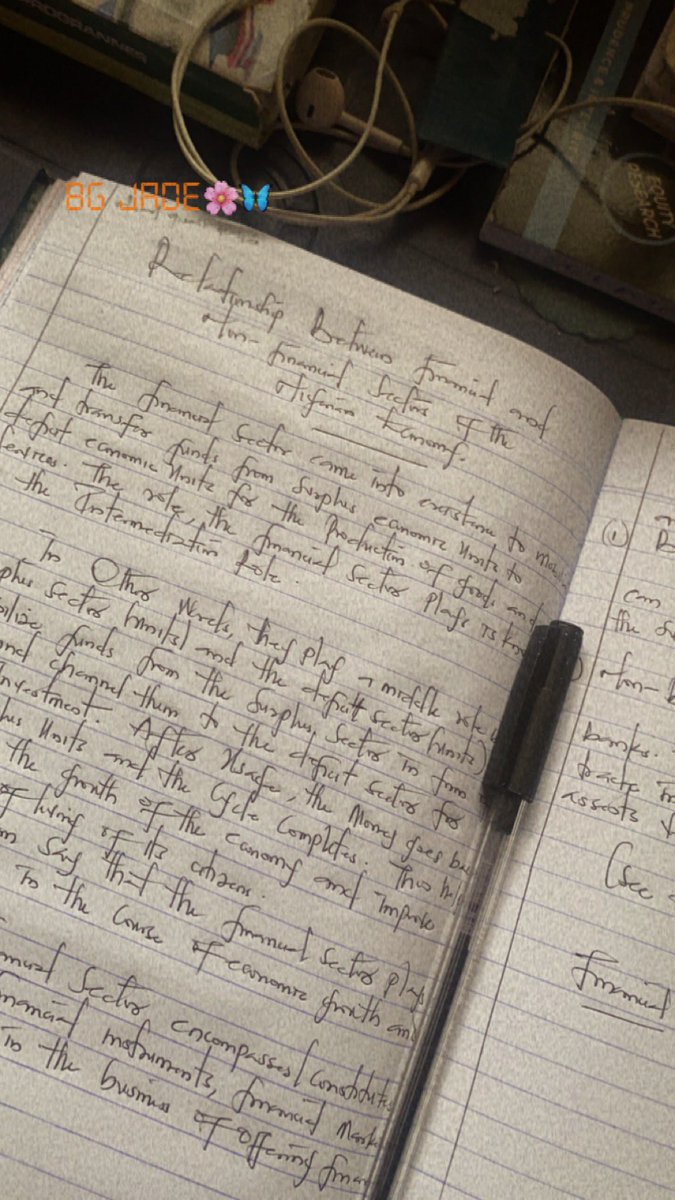 PROGRAMMER
EQUITY
RESEARCH
BG JADE🌸🦋
Relationship Between Financial and
Non-financial Sectors of the
Nigerian Economy.
The financial sector came into existence to
and transfer funds from surplus economic units to
deficit economic units for the production of goods and
services. The role, the financial sector plays is
the Intermediation Role.
In Other words, they play a middle role
sector (units) and the deficit sector (units)
funds from the surplus sector in form
and channel them to the deficit sector for
Investment. After usage, the money goes
units and the cycle completes. This
the growth of the economy and improve
of living of its citizens.
say that the financial sector plays
in the course of economic growth
sector encompasses/constitutes
financial instruments, financial
in the business of offering
(1)
can
the
Non-
banks.
assets
(See
Financial